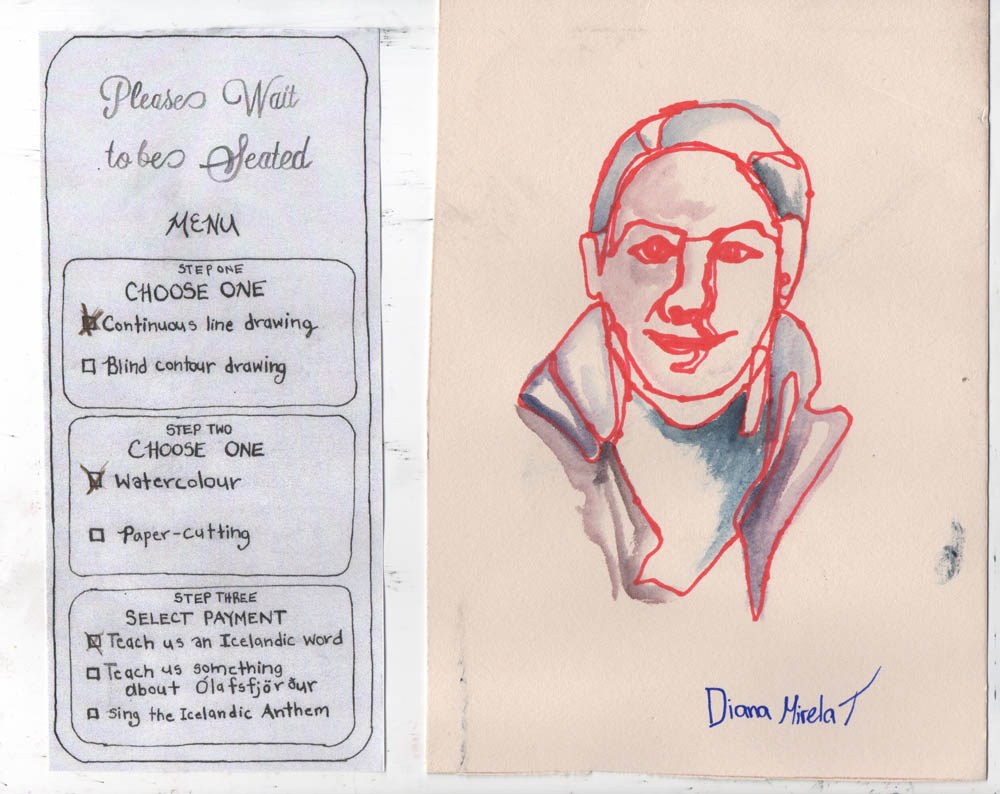 Please Wait
to be Seated
MENU
STEP ONE
CHOOSE ONE
Continuous line drawing
Blind contour drawing
STEP TWO
CHOOSE ONE
Watercolour
Paper-cutting
STEP THREE
SELECT PAYMENT
Teach us an Icelandic word
Teach us something
about Ólafsfjörður
sing the Icelandic Anthem
Diana Mirela T